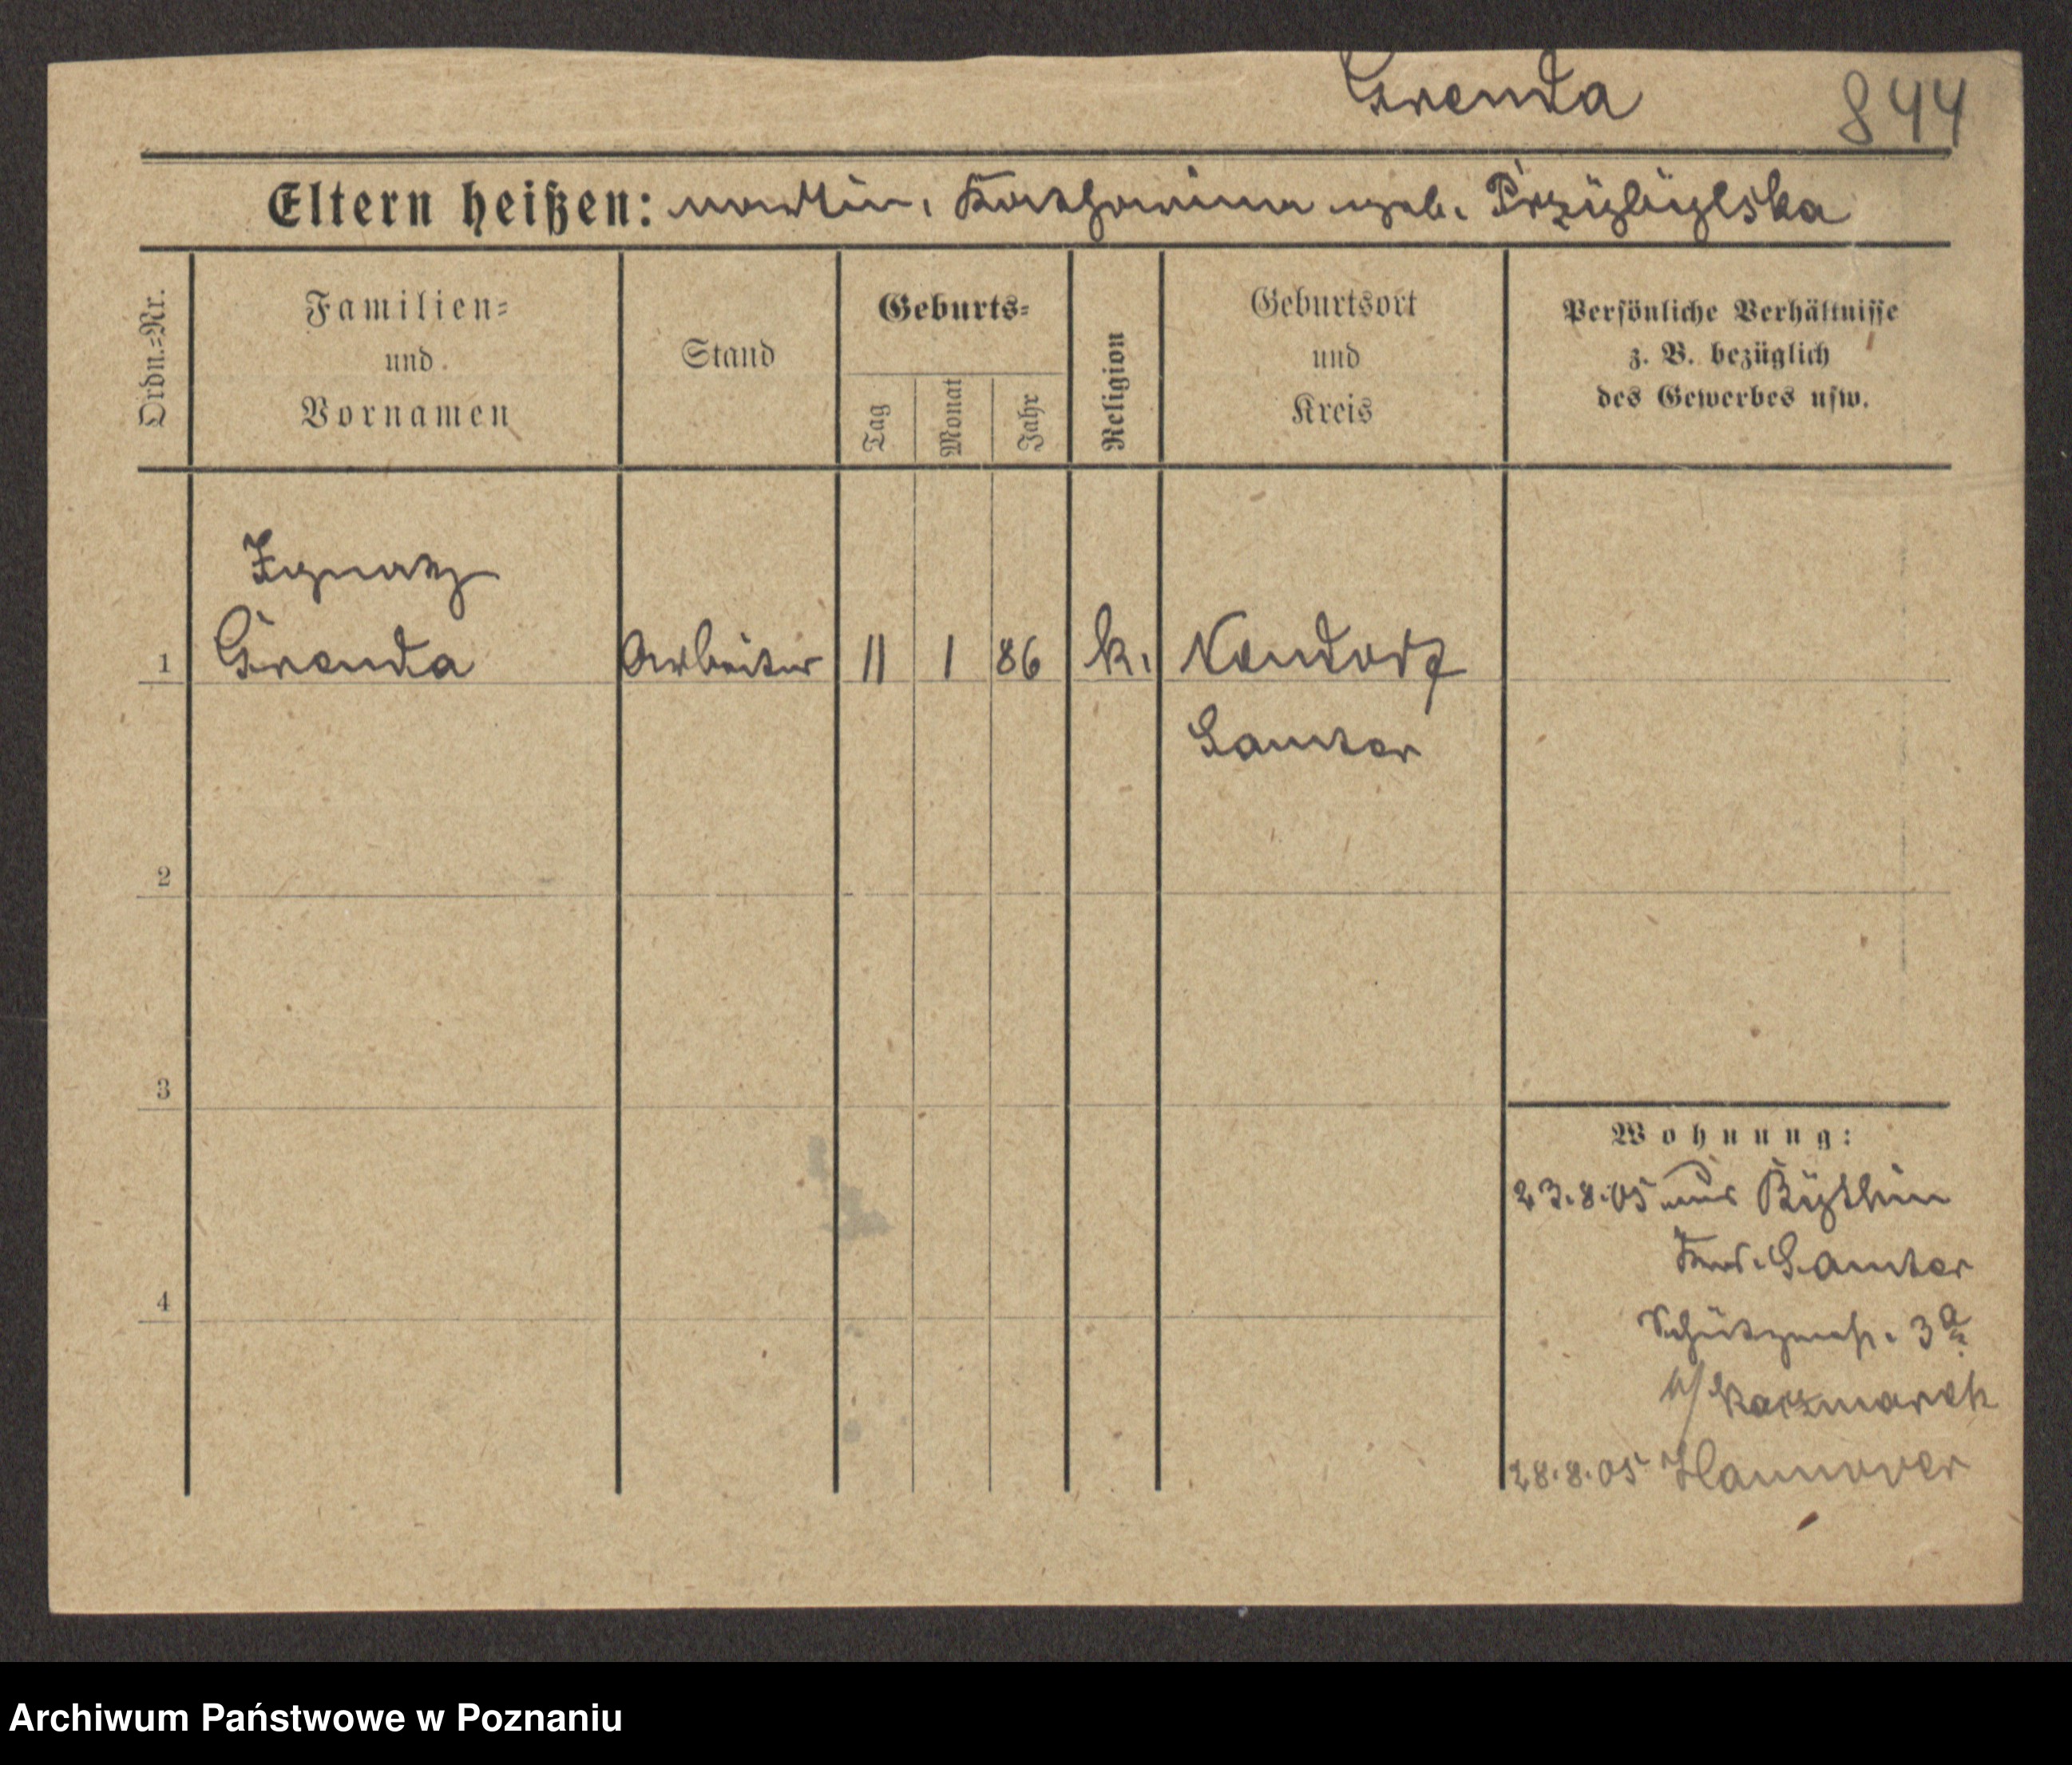 Grenda
844
Eltern heißen: Martin, Katharina geb. Przybylska
Ordn.=Nr.
Familien=
und
Vornamen
Stand
Geburts=
Tag
Monat
Jahr
Religion
Geburtsort
und
Kreis
Persönliche Verhältnisse
z. B. bezüglich
des Gewerbes usw.
Ignatz
1 Grenda Arbeiter 11 1 86 k. Neudorf
Samter
2
3
4
Wohnung:
23.8.05 aus Bythin
Krs. Samter
Schützenstr. 3a
b/ Kaczmarek
28.8.05 Hannover
Archiwum Państwowe w Poznaniu